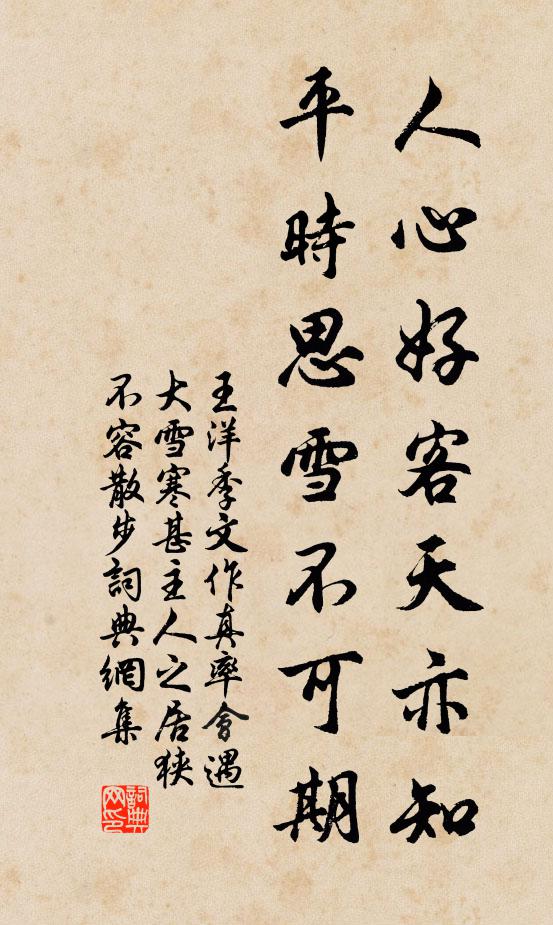 人心好客天亦知
平時思雪不可期
王洋季文作真率會遇
大雪寒甚主人之居狹
不容散步詞典網集
詞典網印